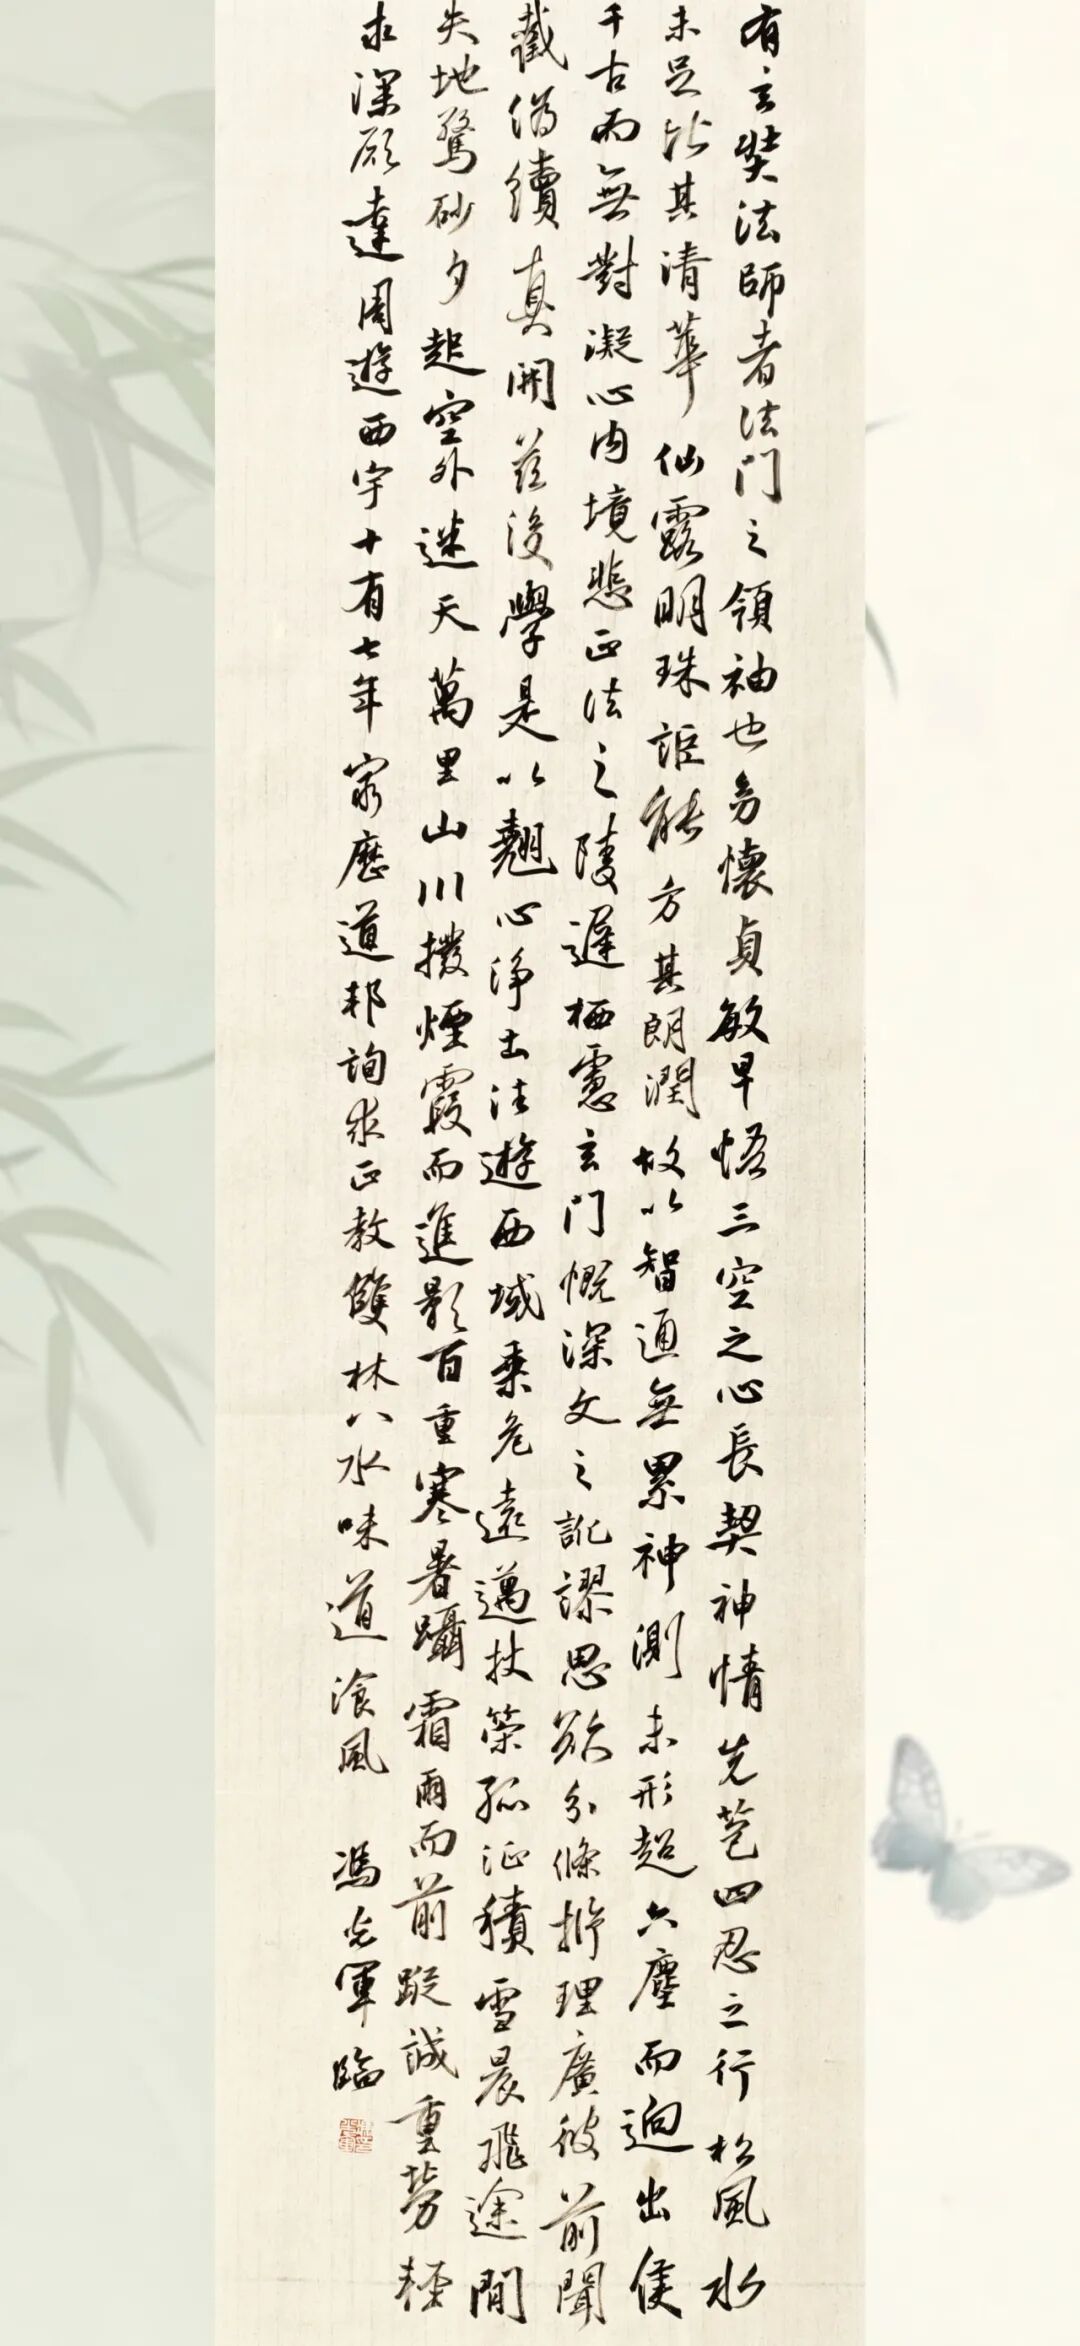 有玄奘法師者法門之領袖也幼懷貞敏早悟三空之心長契神情先苞四忍之行松風水
未足比其清華仙露明珠詎能方其朗潤故以智通無累神測未形超六塵而迥出隻
千古而無對凝心內境悲正法之陵遲栖慮玄門慨深文之訛謬思欲分條析理廣彼前聞
截偽續真開茲後學是以翹心淨土往遊西域乘危遠邁杖策孤征積雪晨飛途間
失地驚砂夕起空外迷天萬里山川撥煙霞而進影百重寒暑躡霜雨而前蹤誠重勞輕
求深願達周遊西宇十有七年窮歷道邦詢求正教雙林八水味道飡風 馮光軍臨